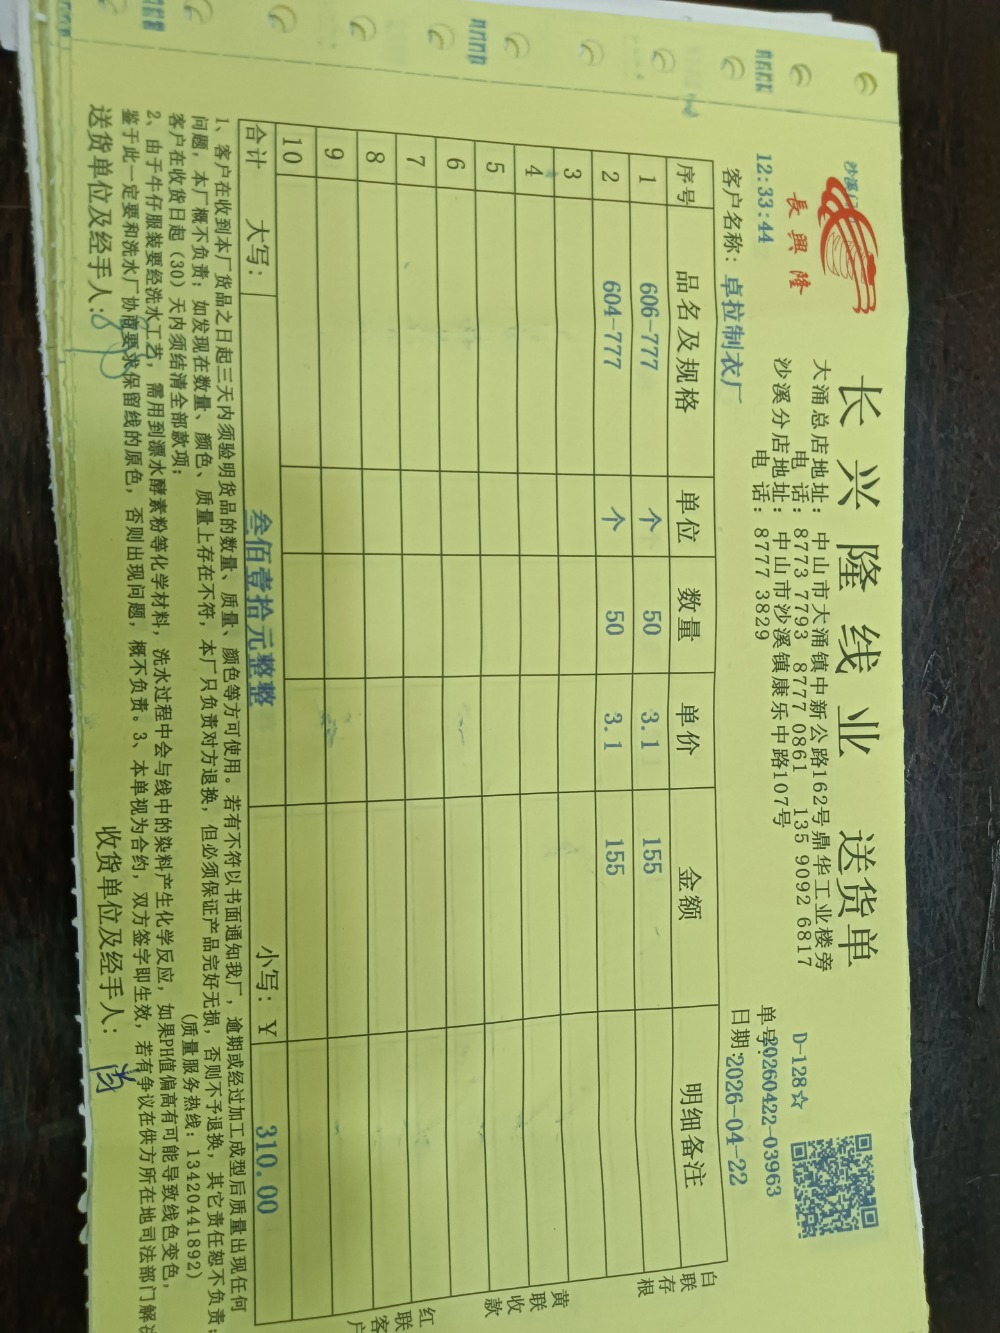 沙溪门
長興隆
长兴隆线业 送货单
大涌总店地址：中山市大涌镇中新公路162号鼎华工业楼旁
电 话：8773 7793 8777 0861 135 9092 6817
沙溪分店地址：中山市沙溪镇康乐中路107号
电 话：8777 3829
D-128☆
12:33:44
单号：20260422-03963
客户名称：卓拉制衣厂
日期：2026-04-22
序号 品名及规格 单位 数量 单价 金额 明细备注
1 606-777 个 50 3.1 155
2 604-777 个 50 3.1 155
3
4
5
6
7
8
9
10
合计 大写： 叁佰壹拾元整整 小写：￥ 310.00
白联存根
黄联收款
红联客户
1、客户在收到本厂货品之日起三天内须验明货品的数量、质量、颜色等方可使用。若有不符以书面通知我厂，逾期或经过加工成型后质量出现任何
问题，本厂概不负责；如发现在数量、颜色、质量上存在不符，本厂只负责对方退换，但必须保证产品完好无损，否则不予退换，其它责任恕不负责；
客户在收货日起（30）天内须结清全部款项； （质量服务热线：13420441892）
2、由于牛仔服装要经洗水工艺，需用到漂水酵素粉等化学材料，洗水过程中会与线中的染料产生化学反应，如果PH值偏高有可能导致线色变色，
鉴于此一定要和洗水厂协商要求保留线的原色，否则出现问题，概不负责。3、本单视为合约，双方签字即生效，若有争议在供方所在地司法部门解决
送货单位及经手人：
收货单位及经手人：